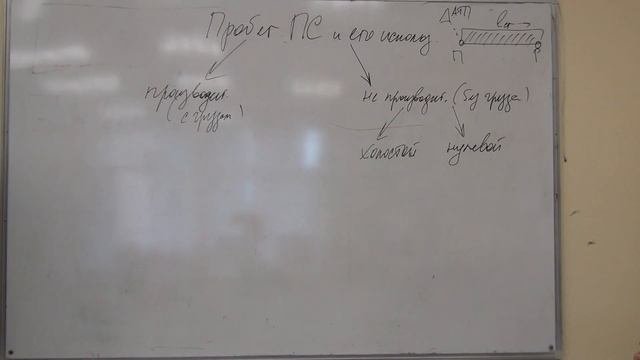 Пробег ПС и его использ.
АТП
lег
П
Р
производит.
(с грузом)
не производит. (без груза)
холостой
нулевой